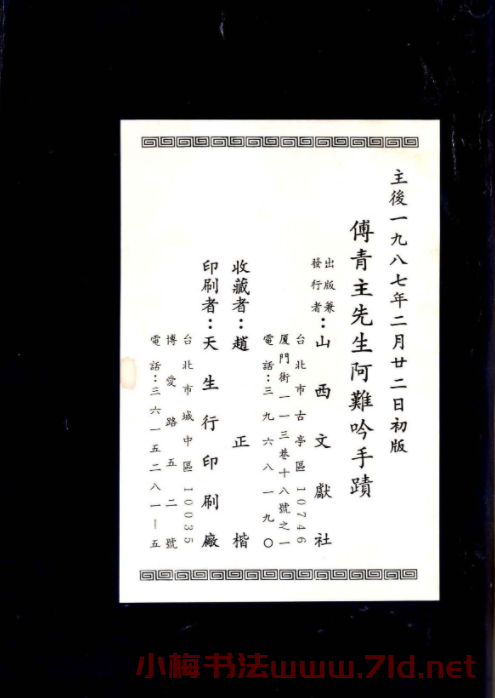 主後一九八七年二月廿二日初版
傅青主先生阿難吟手蹟
出版兼
發行者：山西文獻社
台北市古亭區10746
厦門街一一三巷十八號之一
電話：三九六八一九〇
收藏者：趙正楷
印刷者：天生行印刷廠
台北市城中區10035
博愛路五二號
電話：三六一五二八一—五
小梅书法www.7ld.net